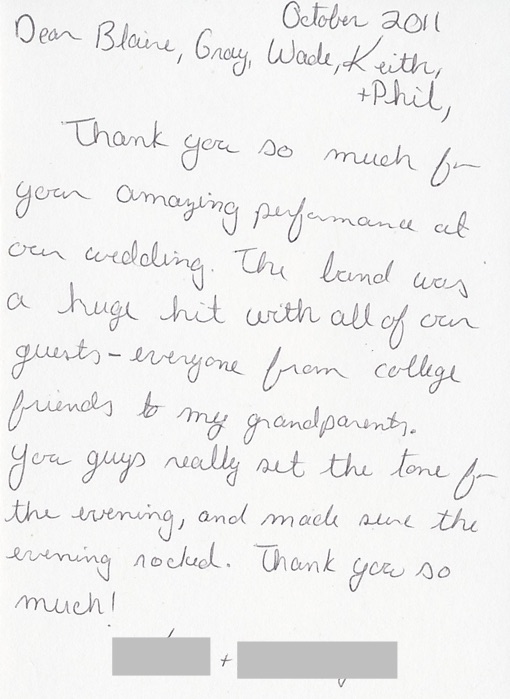 October 2011
Dear Blaine, Gray, Wade, Keith,
+Phil,
Thank you so much for
your amazing performance at
our wedding. The band was
a huge hit with all of our
guests - everyone from college
friends to my grandparents.
You guys really set the tone for
the evening, and made sure the
evening rocked. Thank you so
much!
+